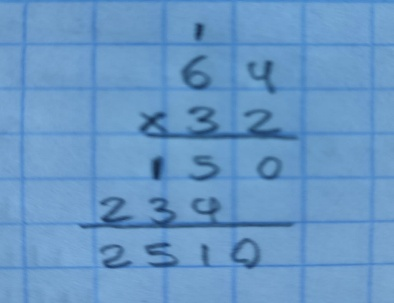 1
6 4
x 3 2
1 5 0
2 3 9
2 5 1 0